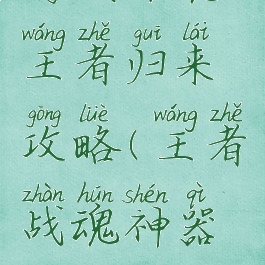 wáng zhě guī lái
王者归来
gōng lüè wáng zhě
攻略(王者
zhàn hún shén qì
战魂神器